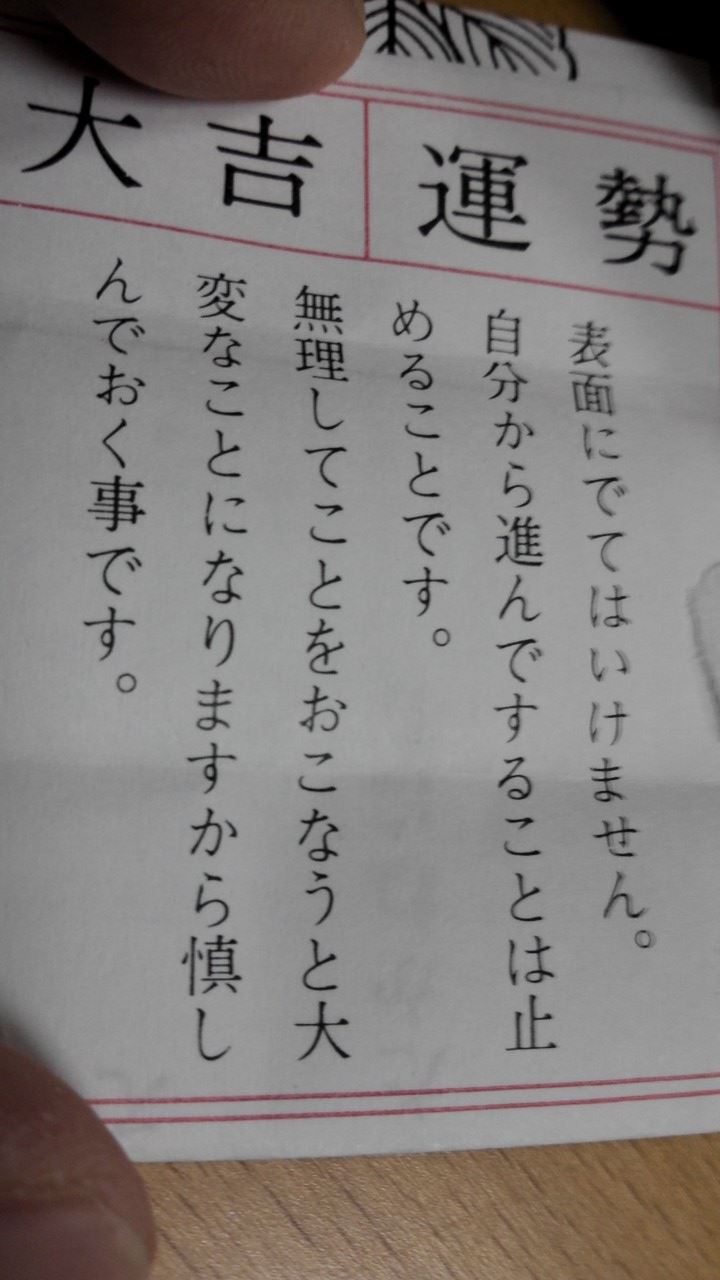 運勢
大吉
表面にでてはいけません。
自分から進んですることは止
めることです。
無理してことをおこなうと大
変なことになりますから慎し
んでおく事です。